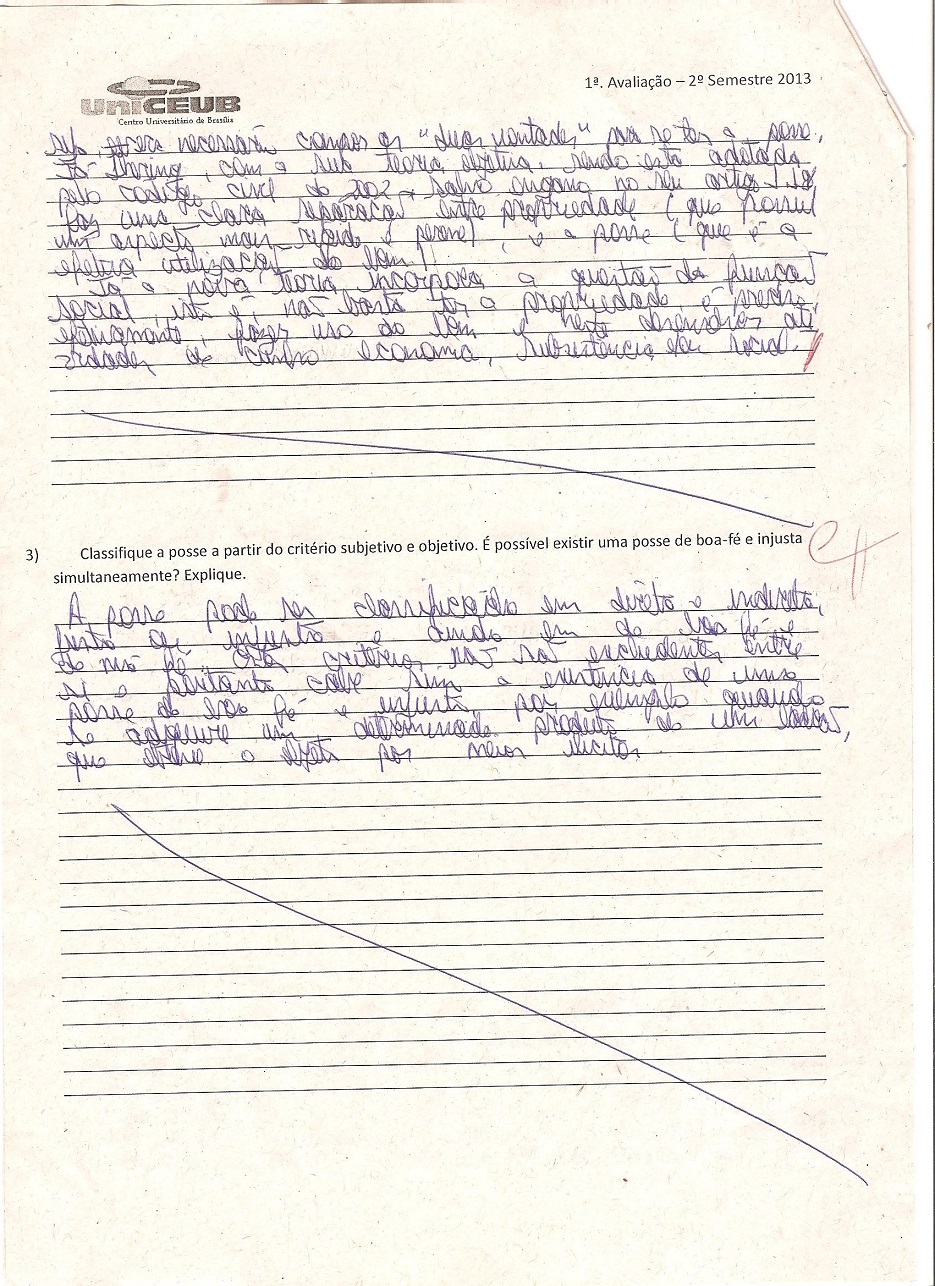 1ª. Avaliação – 2º Semestre 2013
UniCEUB
Centro Universitário de Brasília
necessário compor as "duas vontades" para se ter a posse.
Já Ihering, com a sua teoria objetiva, sendo esta adotada
pelo código civil de 2002, salvo engano no seu artigo
faz uma clara separação entre propriedade (que possui
um aspecto mais rígido e perene), e a posse (que é a
efetiva utilização do bem).
Já a nova teoria incorpora a questão da função
social, isto é, não basta ter a propriedade é preciso,
efetivamente, fazer uso do bem e nele desenvolver ati
vidades de cunho economia, subsistência e/ou social.
3) Classifique a posse a partir do critério subjetivo e objetivo. É possível existir uma posse de boa-fé e injusta
simultaneamente? Explique.
A posse pode ser classificação em direta e indireta,
justa ou injusta e ainda em de boa fé e
de má fé. Os critérios não são excludentes entre
si e portanto cabe sim a existência de uma
posse de boa fé e injusta, por exemplo quando
se adquire um determinado produto de um ladrão,
que obteve o objeto por meios ilícitos.